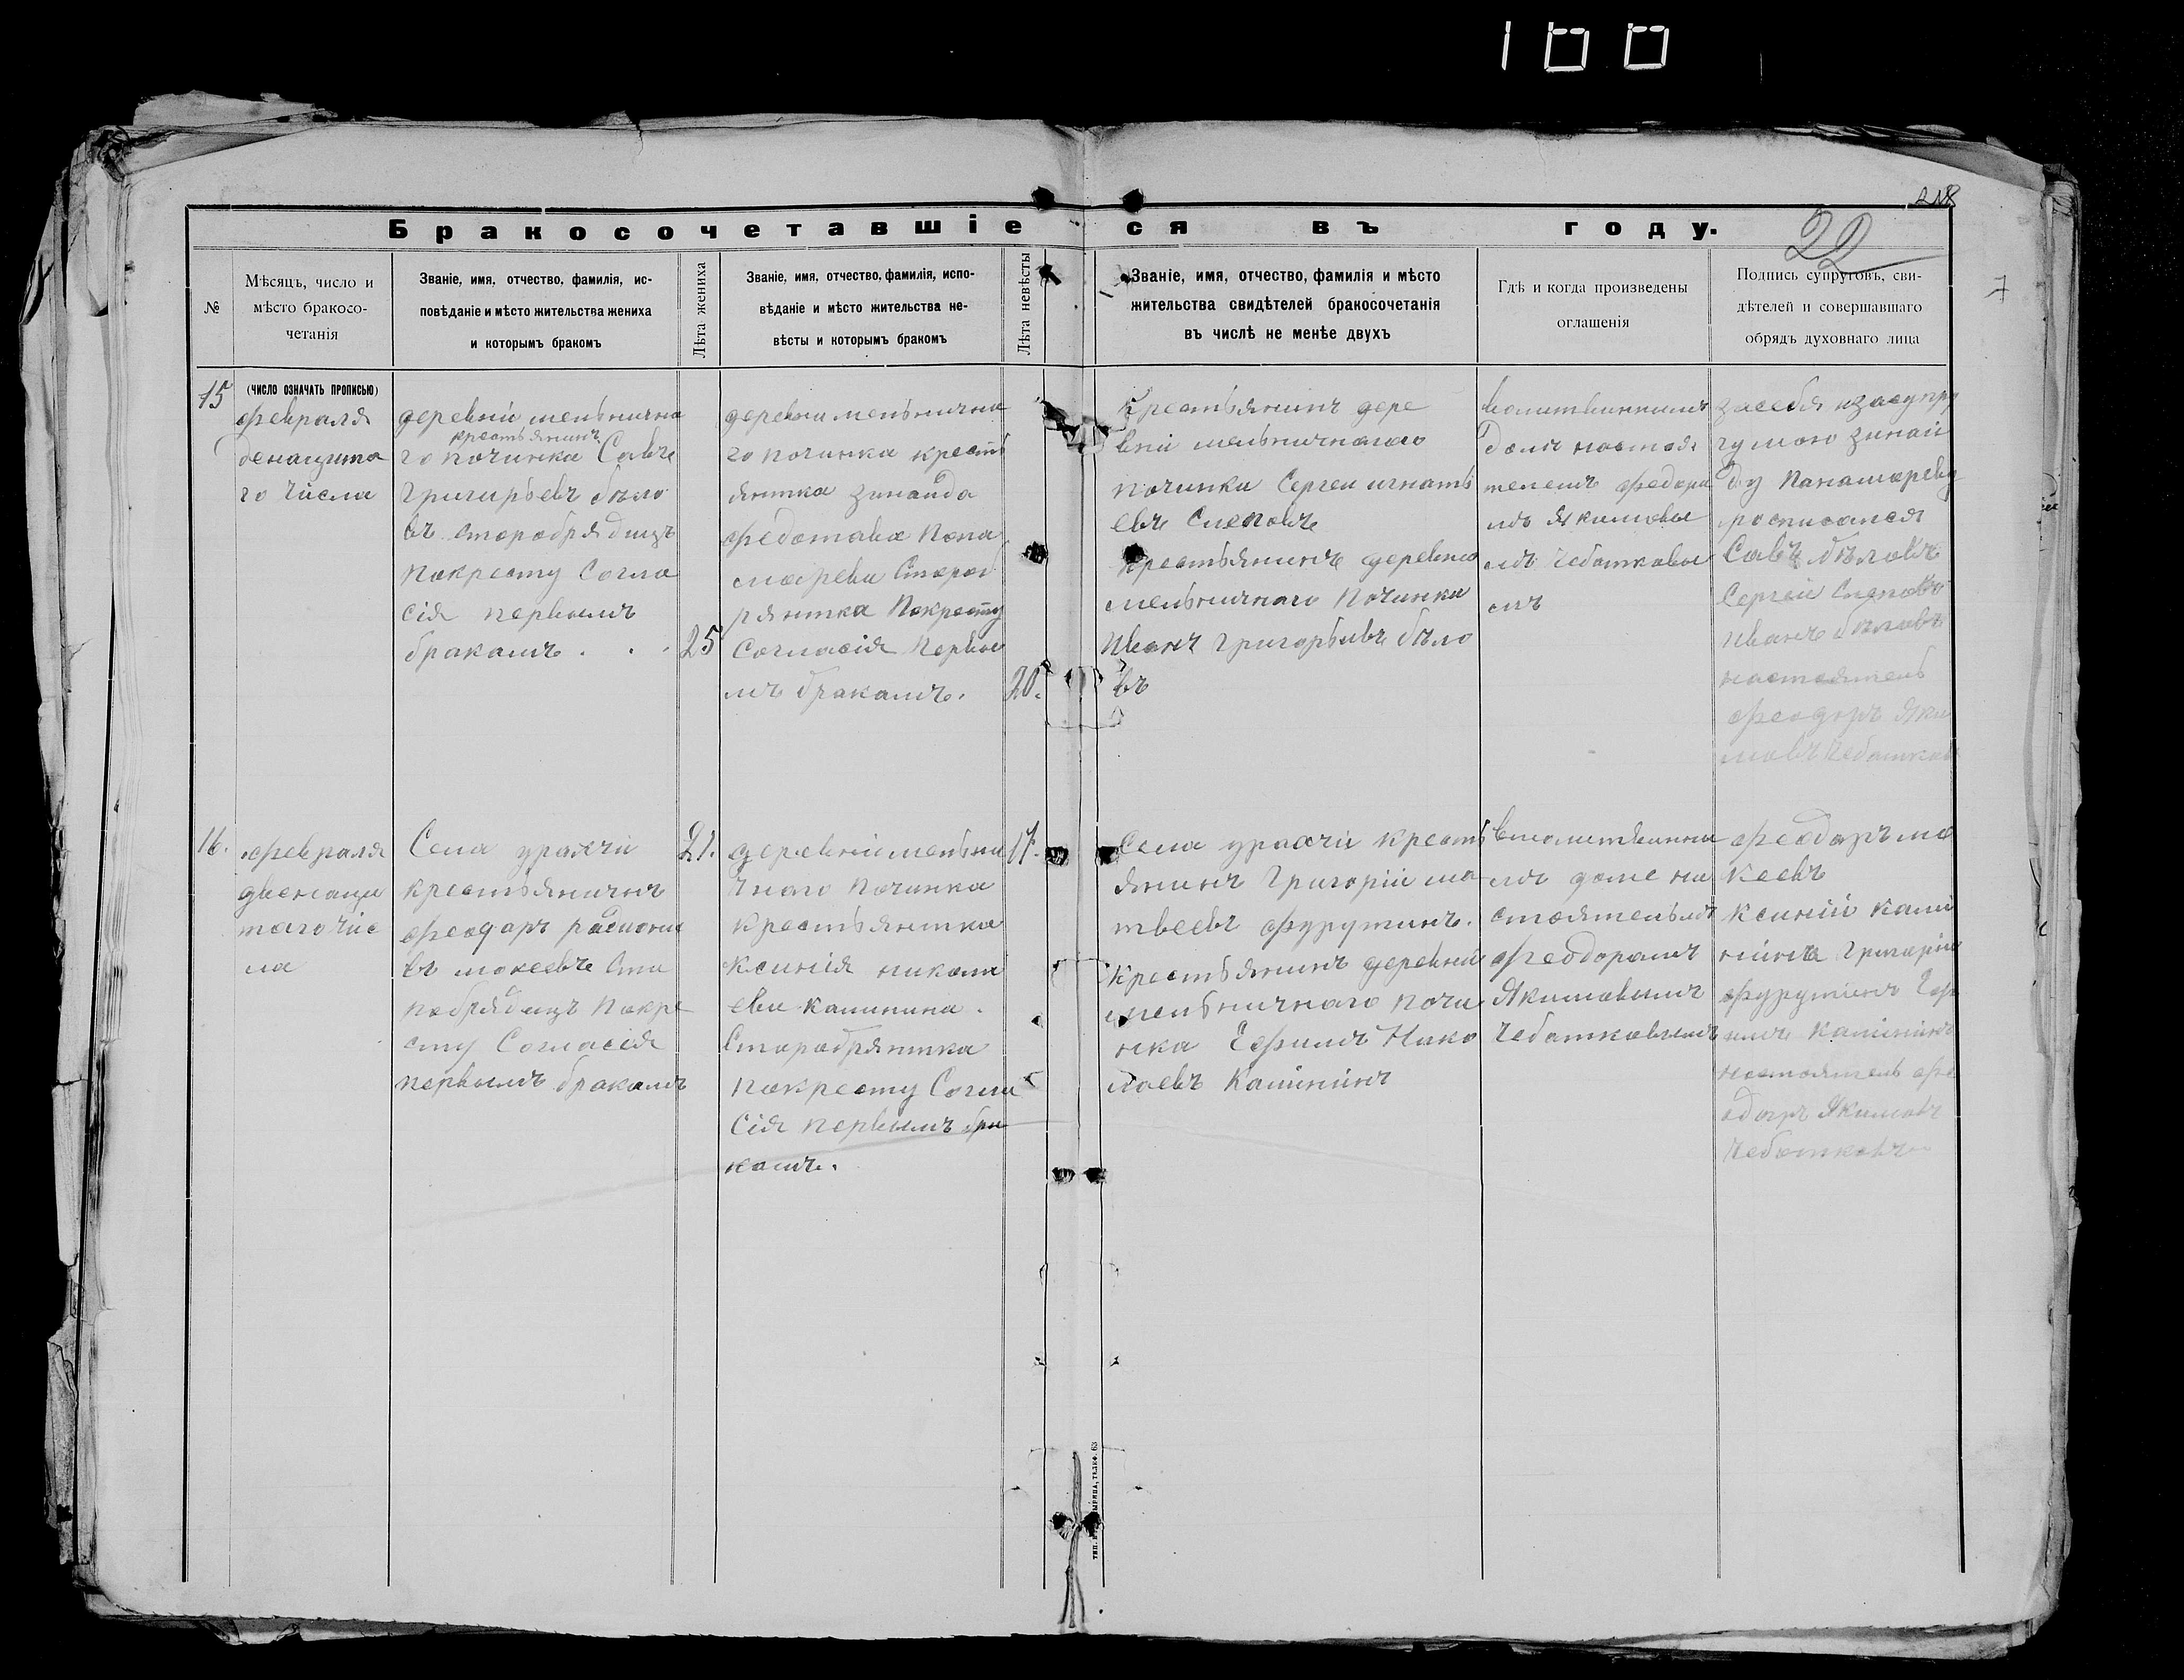 100
218
22
7
Бракосочетавшіеся въ году.
№
Мѣсяцъ, число и
мѣсто бракосо-
четанія
Званіе, имя, отчество, фамилія, ис-
повѣданіе и мѣсто жительства жениха
и которымъ бракомъ
Лѣта жениха
Званіе, имя, отчество, фамилія, испо-
вѣданіе и мѣсто жительства не-
вѣсты и которымъ бракомъ
Лѣта невѣсты
Званіе, имя, отчество, фамилія и мѣсто
жительства свидѣтелей бракосочетанія
въ числѣ не менѣе двухъ
Гдѣ и когда произведены
оглашенія
Подпись супруговъ, сви-
дѣтелей и совершавшаго
обрядъ духовнаго лица
15
(число означать прописью)
февраля
денацата
го числа
деревни мельнична
крестьянинъ
го починка Савъ
Григорьевъ бѣло
въ старобрядицъ
покресту Согла
сія первымъ
бракамъ . . .
25
деревни мельнична
го починка кресть
янтка зинаида
федотова Пона
марева Стороб
рянтка Покресту
Согласія Первы
мъ бракамъ.
20.
Крестьянинъ дере
вни мельничнаго
починка Сергеи игнать
евъ Слеповъ
крестьянинъ деревни
мельничнаго Починка
Иванъ григорьивъ бѣло
въ
вомитвинномъ
доми настоя
телемъ федора
мъ Якимовы
мъ Чеботковы
мъ
засебя изасупру
гу мою зинаи
ду Панамореву
росписался
Савъ бѣловъ
Сергеи Слеповъ
Иванъ бѣловъ
настоятель
феодоръ Яки
мовъ Чеботков
16.
февраля
двенаца
таго чис
ла
Села урахчи
крестьянинъ
феодаръ радиона
въ мокеевъ Ста
рабрядицъ Покре
сту Согласія
первымъ бракамъ
21.
деревни мельни
чнаго Починка
Крестьянтка
Ксинія никола
ева калинина.
Старабрянтка
покресту Согла
сія первымъ бра
камъ.
17.
Села урахчи кресть
янинъ Григоріи ма
твеевъ фурутинъ.
крестьянинъ деревни
мельничнаго почи
нка Ефимъ Нико
лаевъ Калининъ
вмолитвинна
мъ доме на
стоятельмъ
феодорамъ
Якимавымъ
Чебатковымъ
феодаръ мо
кеевъ
ксиніи кали
нина Григоріи
фурутинъ Еф
имъ калининъ
настоятель фе
одоръ Якимовъ
Чеботковъ